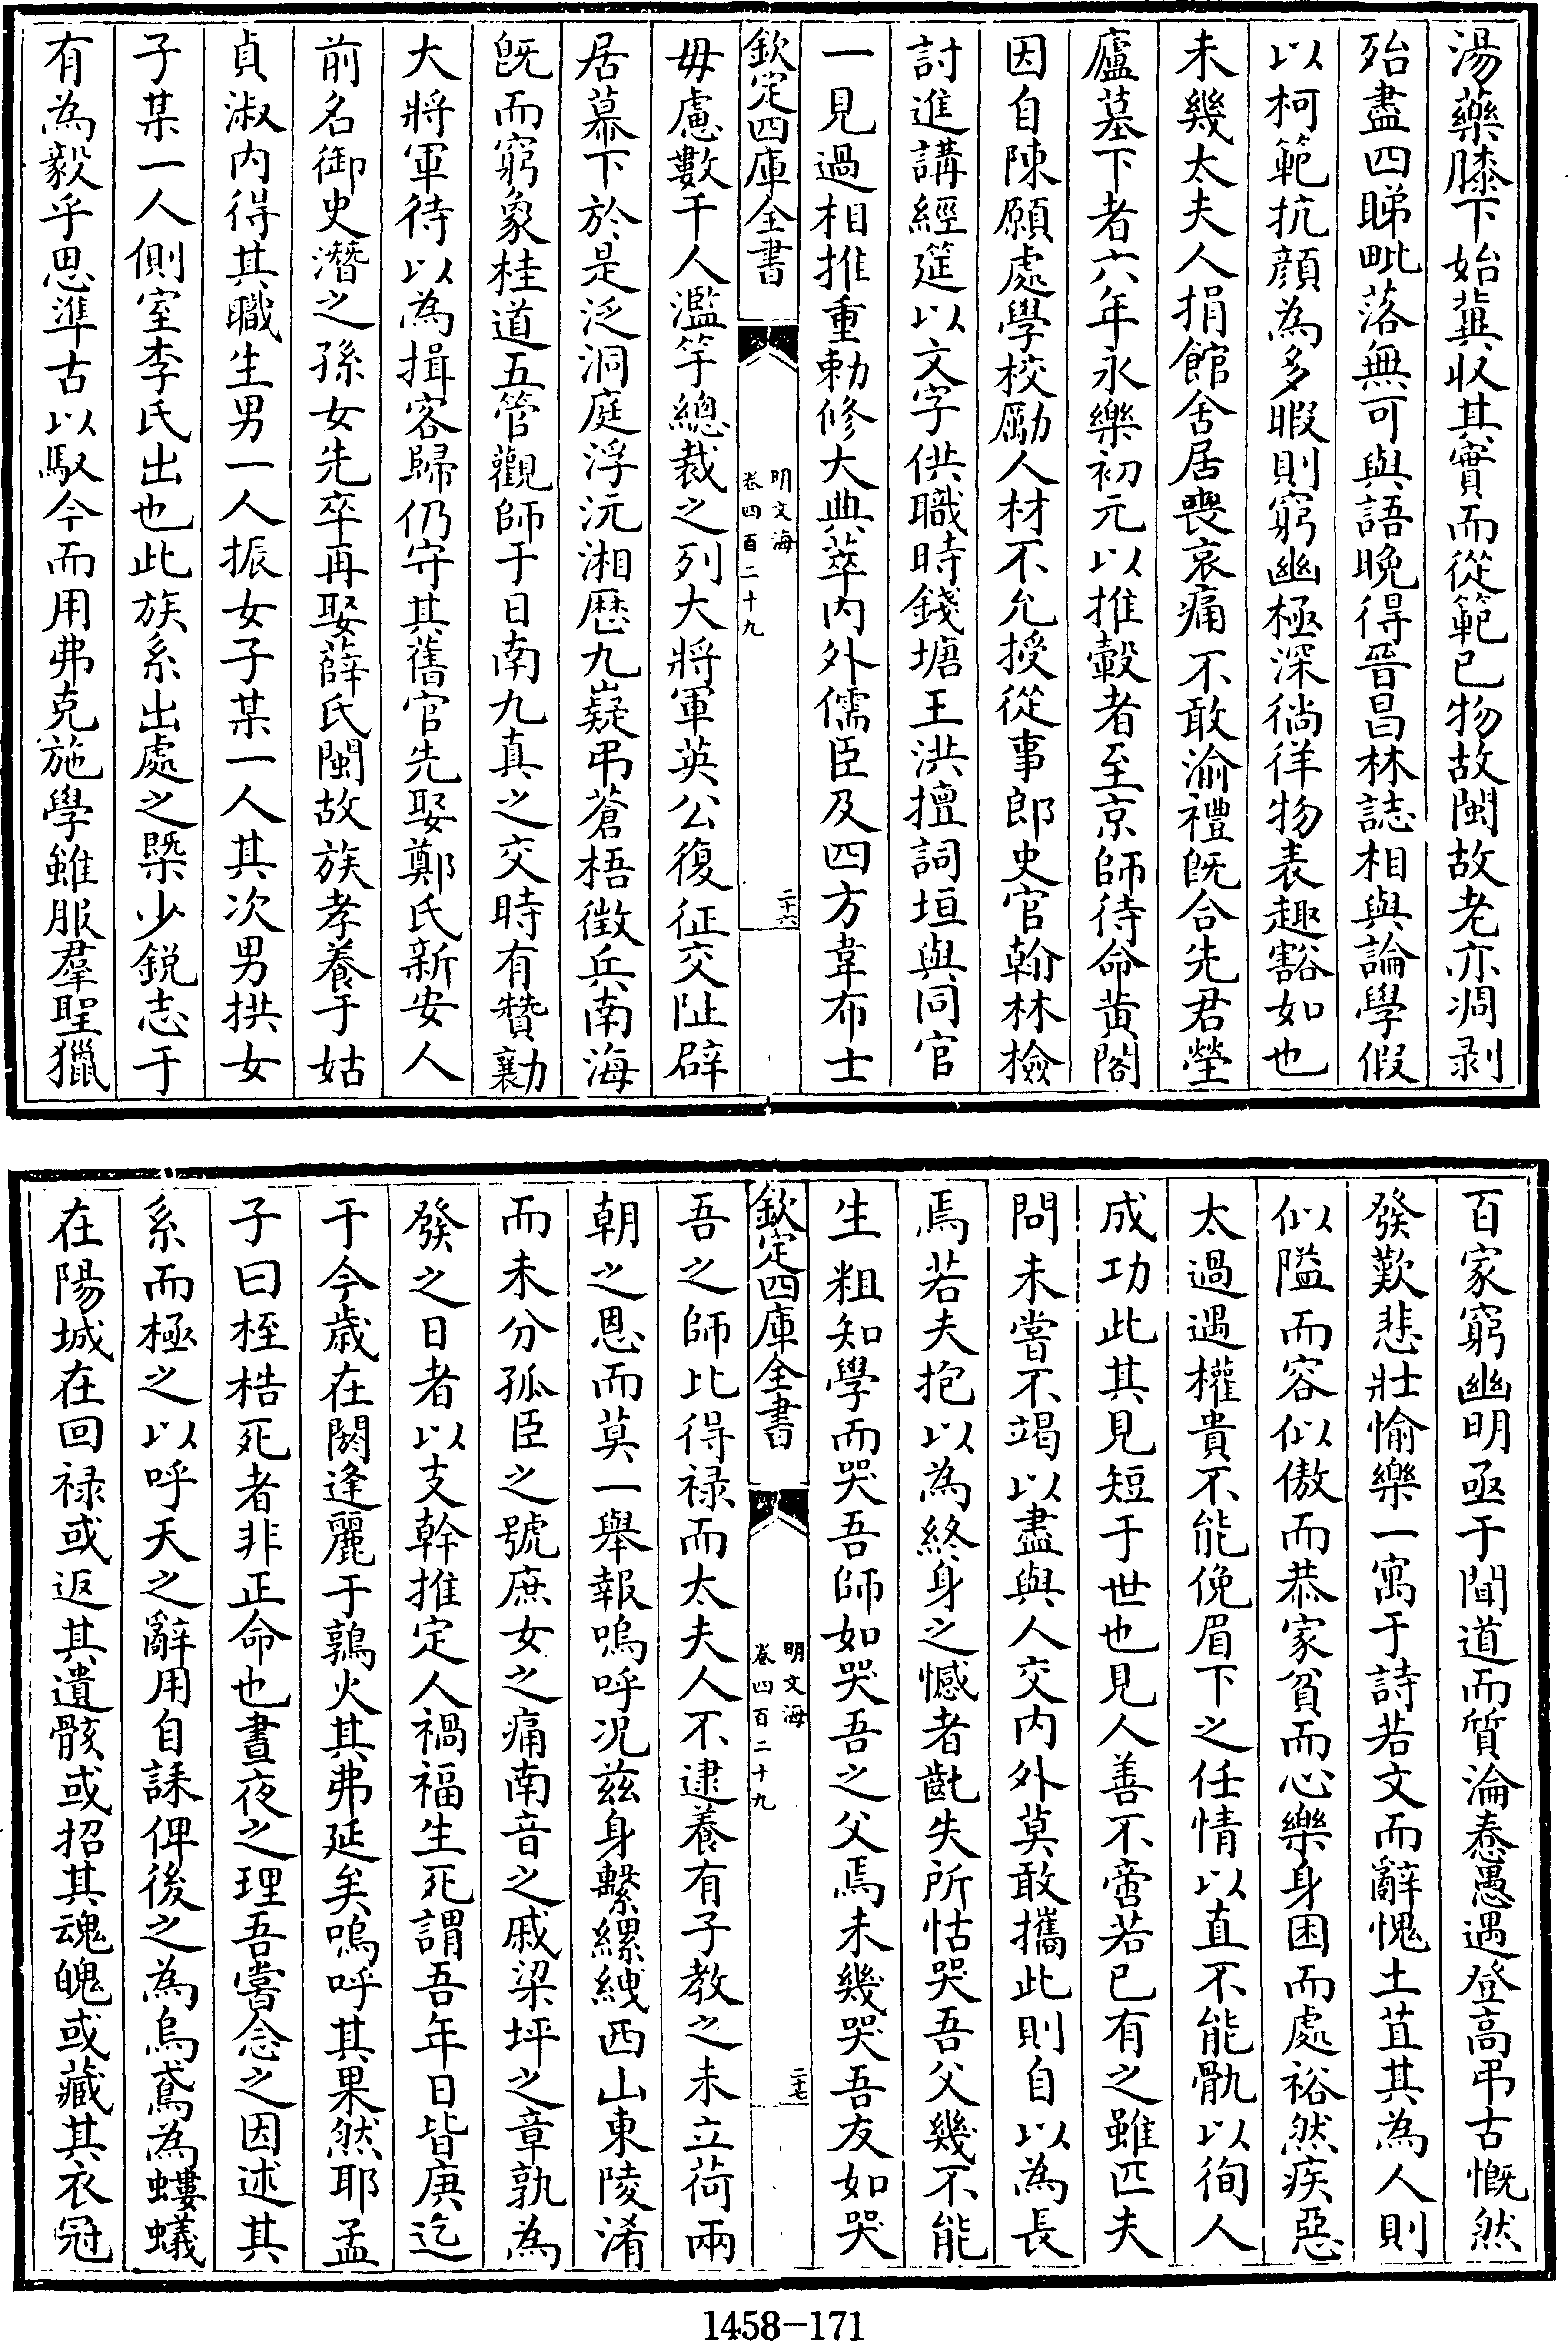 湯藥膝下始冀収其實而從範已物故閩故老亦凋剥
殆盡四睇毗落無可與語晚得晉昌林誌相與論學假
以柯範抗顔為多暇則窮幽極深徜徉物表趣豁如也
未幾太夫人捐館舍居喪哀痛不敢渝禮既合先君塋
廬墓下者六年永樂初元以推轂者至京師待命黄閣
因自陳願處學校勵人材不允授從事郎史官翰林檢
討進講經筵以文字供職時錢塘王洪擅詞垣與同官
一見過相推重勅修大典萃内外儒臣及四方韋布士
欽定四庫全書
明文海
卷四百二十九
二十六
毋慮數千人濫竽總裁之列大將軍英公復征交阯辟
居幕下於是泛洞庭浮沅湘歷九嶷弔蒼梧徴兵南海
既而窮象桂道五管觀師于日南九真之交時有贊襄勷
大將軍待以為揖客歸仍守其舊官先娶鄭氏新安人
前名御史潛之孫女先卒再娶薛氏閩故族孝養于姑
貞淑内得其職生男一人振女子某一人其次男拱女
子某一人側室李氏出也此族系出處之槩少鋭志于
有為毅乎思準古以馭今而用弗克施學雖服羣聖獵
百家窮幽明亟于聞道而質淪惷愚遇登高弔古慨然
發歎悲壯愉樂一寓于詩若文而辭愧土苴其為人則
似隘而容似傲而恭家貧而心樂身困而處裕然疾惡
太過遇權貴不能俛眉下之任情以直不能骫以徇人
成功此其見短于世也見人善不啻若已有之雖匹夫
問未嘗不竭以盡與人交内外莫敢攜此則自以為長
焉若夫抱以為終身之憾者齔失所怙哭吾父幾不能
生粗知學而哭吾師如哭吾之父焉未幾哭吾友如哭
欽定四庫全書
明文海
卷四百二十九
二十七
吾之師比得禄而太夫人不逮養有子教之未立荷兩
朝之恩而莫一舉報嗚呼况兹身繫縲絏西山東陵淆
而未分孤臣之號庶女之痛南音之戚梁坪之章孰為
發之日者以支幹推定人禍福生死謂吾年日皆庚迄
于今歳在閼逢麗于鶉火其弗延矣嗚呼其果然耶孟
子曰桎梏死者非正命也晝夜之理吾嘗念之因述其
系而極之以呼天之辭用自誄俾後之為烏鳶為螻蟻
在陽城在回禄或返其遺骸或招其魂魄或藏其衣冠
1458-171